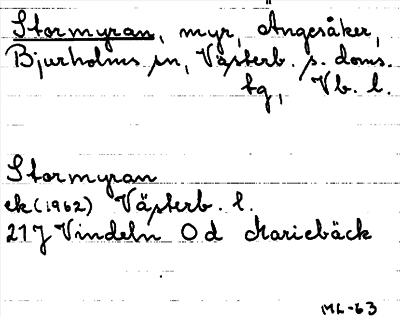 Stormyran, myr, Ängesåker,
Bjurholms sn, Västerb. s. doms.
tg, Vb. l.
Stormyran
ek (1962) Västerb. l.
21J Vindeln 0 d Mariebäck
ML-63